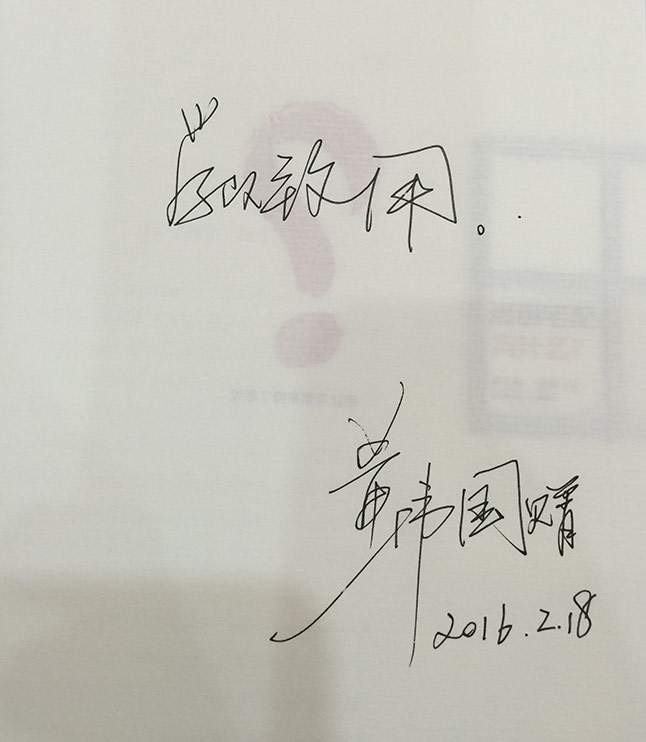 学以致用。
黄伟国赠
2016.2.18